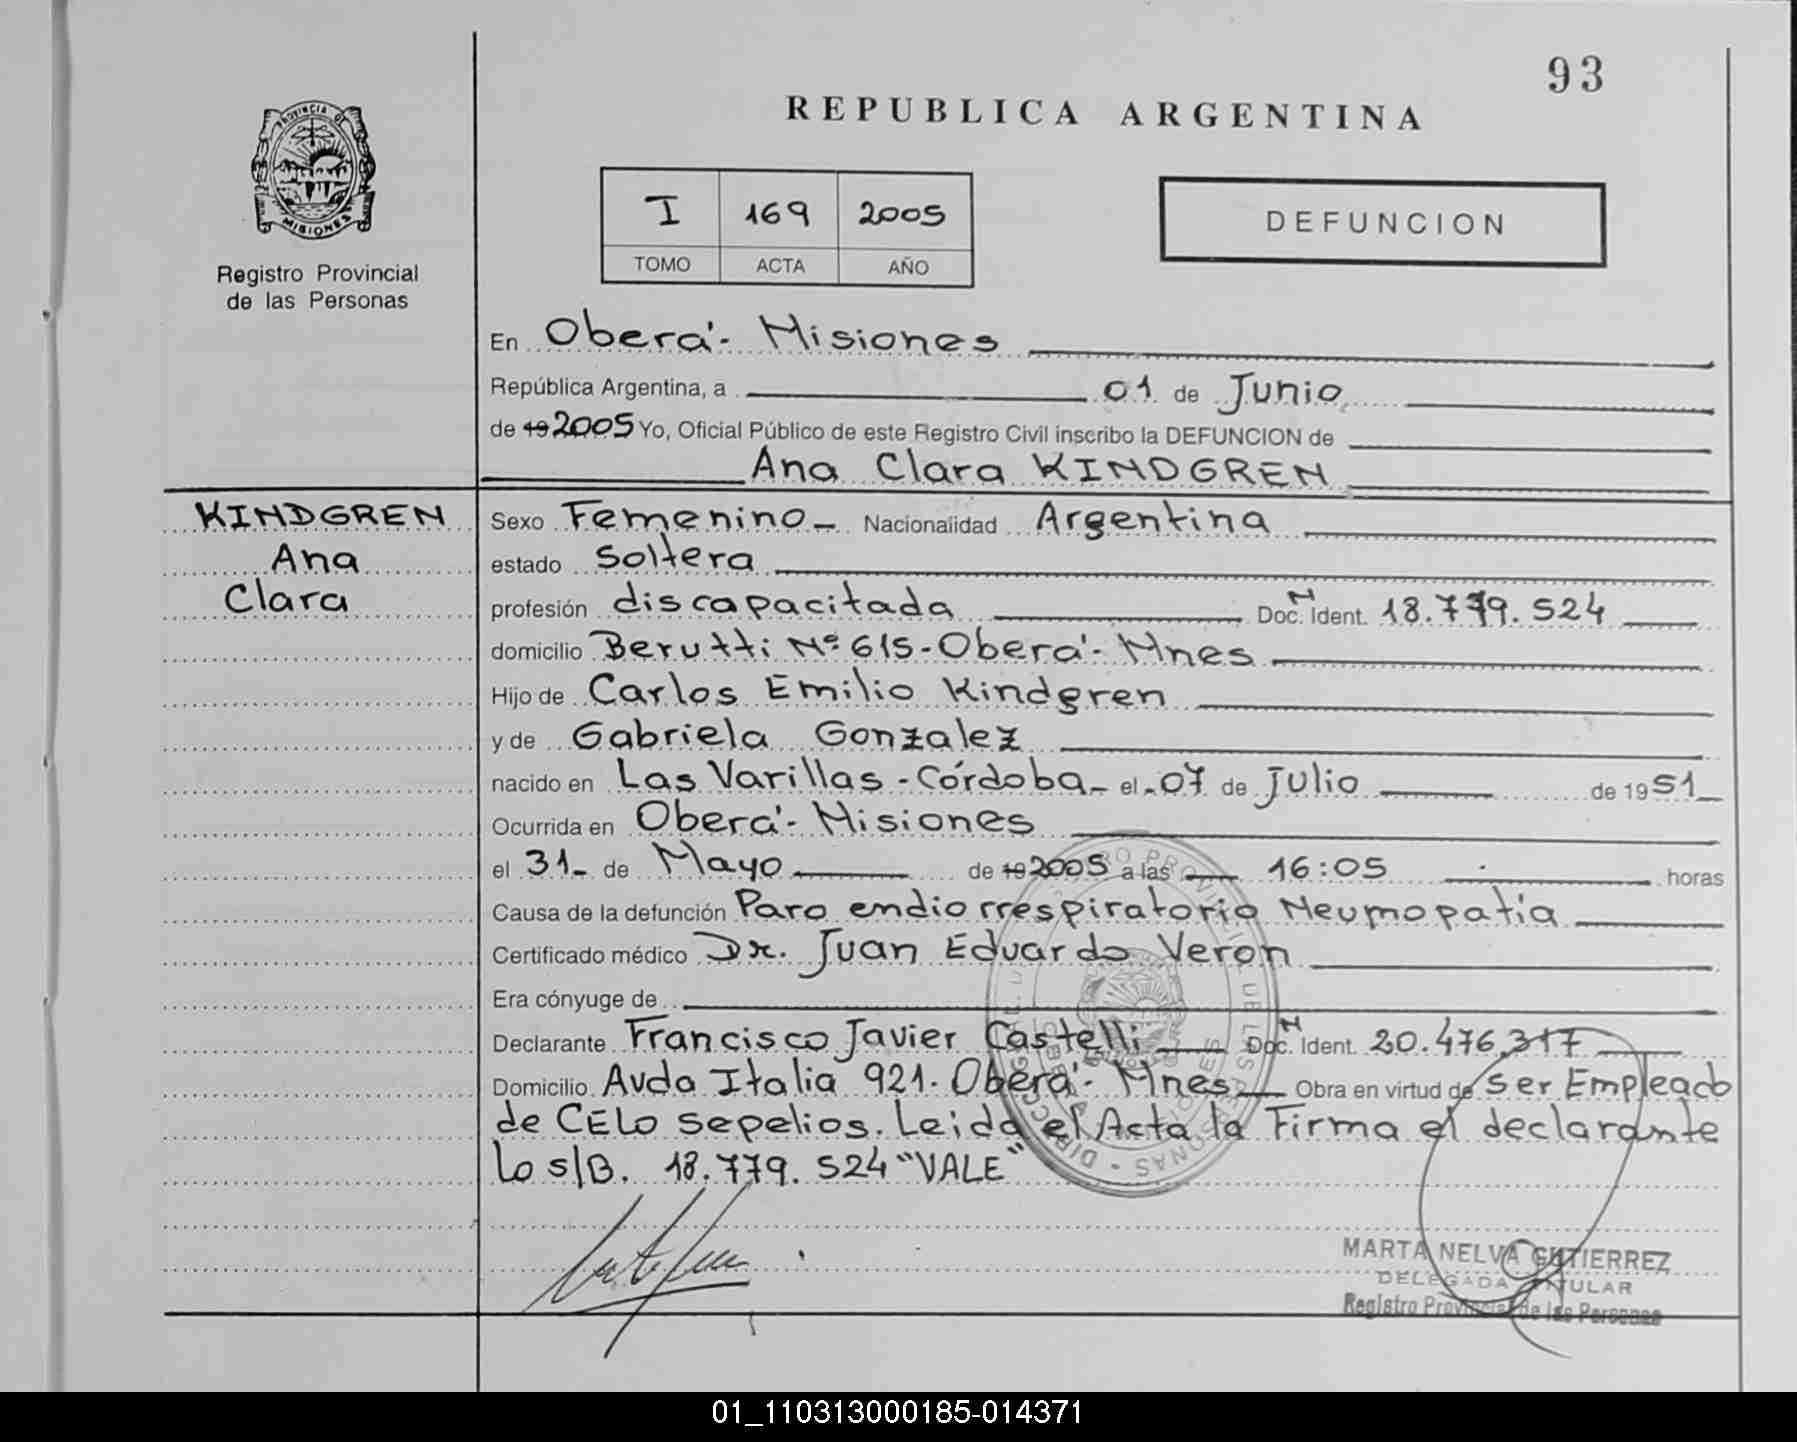 93
REPUBLICA ARGENTINA
PROVINCIA DE
MISIONES
Registro Provincial
de las Personas
I 169 2005
TOMO ACTA AÑO
DEFUNCION
En Oberá- Misiones
República Argentina, a 01 de Junio
de 19 2005 Yo, Oficial Público de este Registro Civil inscribo la DEFUNCION de
Ana Clara KINDGREN
KINDGREN
Ana
Clara
Sexo Femenino - Nacionalidad Argentina
estado Soltera
profesión discapacitada Doc. N Ident. 18.779.524
domicilio Berutti Nº 615-Oberá- Mnes
Hijo de Carlos Emilio Kindgren
y de Gabriela Gonzalez
nacido en Las Varillas - Córdoba - el 07 de Julio de 1951
Ocurrida en Oberá- Misiones
el 31 de Mayo de 19 2005 a las 16:05 horas
Causa de la defunción Paro endiorrespiratorio Neumopatia
Certificado médico Dr. Juan Eduardo Veron
Era cónyuge de
Declarante Francisco Javier Castelli Doc. N Ident. 20.476.317
Domicilio Avda Italia 921. Oberá- Mnes Obra en virtud de ser Empleado
de CELO sepelios. Leida el Acta la Firma el declarante
Lo s/B. 18.779.524 "VALE"
MARTA NELVA GUTIERREZ
DELEGADA TITULAR
Registro Provincial de las Personas
01_110313000185-014371